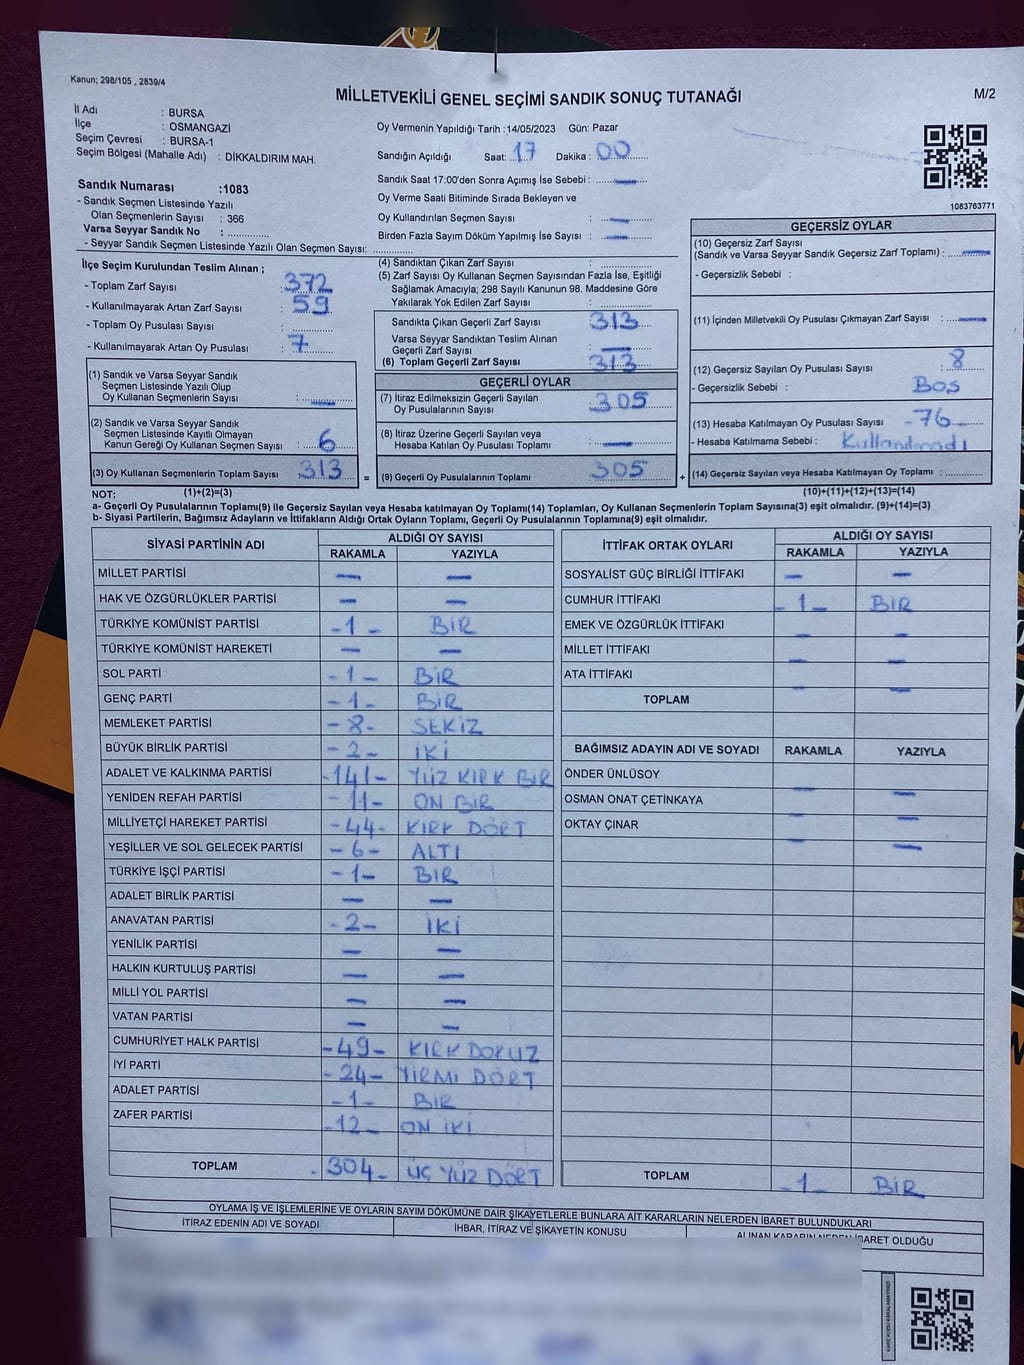 Kanun; 298/105 , 2839/4
MİLLETVEKİLİ GENEL SEÇİMİ SANDIK SONUÇ TUTANAĞI
M/2
İl Adı : BURSA
İlçe : OSMANGAZİ
Seçim Çevresi : BURSA-1
Seçim Bölgesi (Mahalle Adı) : DİKKALDIRIM MAH.
Sandık Numarası :1083
- Sandık Seçmen Listesinde Yazılı
Olan Seçmenlerin Sayısı : 366
Varsa Seyyar Sandık No :
- Seyyar Sandık Seçmen Listesinde Yazılı Olan Seçmen Sayısı:
Oy Vermenin Yapıldığı Tarih :14/05/2023 Gün: Pazar
Sandığın Açıldığı Saat: 17 Dakika : 00
Sandık Saat 17:00'den Sonra Açımış İse Sebebi : —
Oy Verme Saati Bitiminde Sırada Bekleyen ve
Oy Kullandırılan Seçmen Sayısı : —
Birden Fazla Sayım Döküm Yapılmış İse Sayısı : —
1083763771
İlçe Seçim Kurulundan Teslim Alınan ;
- Toplam Zarf Sayısı : 372
- Kullanılmayarak Artan Zarf Sayısı : 59
- Toplam Oy Pusulası Sayısı :
- Kullanılmayarak Artan Oy Pusulası : 7
(1) Sandık ve Varsa Seyyar Sandık
Seçmen Listesinde Yazılı Olup
Oy Kullanan Seçmenlerin Sayısı : —
(2) Sandık ve Varsa Seyyar Sandık
Seçmen Listesinde Kayıtlı Olmayan
Kanun Gereği Oy Kullanan Seçmen Sayısı : 6
(3) Oy Kullanan Seçmenlerin Toplam Sayısı : 313
(4) Sandıktan Çıkan Zarf Sayısı :
(5) Zarf Sayısı Oy Kullanan Seçmen Sayısından Fazla İse, Eşitliği
Sağlamak Amacıyla; 298 Sayılı Kanunun 98. Maddesine Göre
Yakılarak Yok Edilen Zarf Sayısı :
Sandıkta Çıkan Geçerli Zarf Sayısı : 313
Varsa Seyyar Sandıktan Teslim Alınan
Geçerli Zarf Sayısı : —
(6) Toplam Geçerli Zarf Sayısı : 313
GEÇERLİ OYLAR
(7) İtiraz Edilmeksizin Geçerli Sayılan
Oy Pusulalarının Sayısı : 305
(8) İtiraz Üzerine Geçerli Sayılan veya
Hesaba Katılan Oy Pusulası Toplamı : —
= (9) Geçerli Oy Pusulalarının Toplamı : 305
GEÇERSİZ OYLAR
(10) Geçersiz Zarf Sayısı
(Sandık ve Varsa Seyyar Sandık Geçersiz Zarf Toplamı) : —
- Geçersizlik Sebebi :
(11) İçinden Milletvekili Oy Pusulası Çıkmayan Zarf Sayısı : —
(12) Geçersiz Sayılan Oy Pusulası Sayısı : 8
- Geçersizlik Sebebi : Boş
(13) Hesaba Katılmayan Oy Pusulası Sayısı : -76
- Hesaba Katılmama Sebebi : Kullanılmadı
+ (14) Geçersiz Sayılan veya Hesaba Katılmayan Oy Toplamı :
(1)+(2)=(3)
(10)+(11)+(12)+(13)=(14)
NOT:
a- Geçerli Oy Pusulalarının Toplamı(9) ile Geçersiz Sayılan veya Hesaba katılmayan Oy Toplamı(14) Toplamları, Oy Kullanan Seçmenlerin Toplam Sayısına(3) eşit olmalıdır. (9)+(14)=(3)
b- Siyasi Partilerin, Bağımsız Adayların ve İttifakların Aldığı Ortak Oyların Toplamı, Geçerli Oy Pusulalarının Toplamına(9) eşit olmalıdır.
SİYASİ PARTİNİN ADI ALDIĞI OY SAYISI
RAKAMLA YAZIYLA
MİLLET PARTİSİ — —
HAK VE ÖZGÜRLÜKLER PARTİSİ — —
TÜRKİYE KOMÜNİST PARTİSİ -1- BİR
TÜRKİYE KOMÜNİST HAREKETİ — —
SOL PARTİ -1- BİR
GENÇ PARTİ -1- BİR
MEMLEKET PARTİSİ -8- SEKİZ
BÜYÜK BİRLİK PARTİSİ -2- İKİ
ADALET VE KALKINMA PARTİSİ -141- YÜZ KIRK BİR
YENİDEN REFAH PARTİSİ -11- ON BİR
MİLLİYETÇİ HAREKET PARTİSİ -44- KIRK DÖRT
YEŞİLLER VE SOL GELECEK PARTİSİ -6- ALTI
TÜRKİYE İŞÇİ PARTİSİ -1- BİR
ADALET BİRLİK PARTİSİ — —
ANAVATAN PARTİSİ -2- İKİ
YENİLİK PARTİSİ — —
HALKIN KURTULUŞ PARTİSİ — —
MİLLİ YOL PARTİSİ — —
VATAN PARTİSİ — —
CUMHURİYET HALK PARTİSİ -49- KIRK DOKUZ
İYİ PARTİ -24- YİRMİ DÖRT
ADALET PARTİSİ -1- BİR
ZAFER PARTİSİ -12- ON İKİ
TOPLAM -304- ÜÇ YÜZ DÖRT
İTTİFAK ORTAK OYLARI ALDIĞI OY SAYISI
RAKAMLA YAZIYLA
SOSYALİST GÜÇ BİRLİĞİ İTTİFAKI — —
CUMHUR İTTİFAKI -1- BİR
EMEK VE ÖZGÜRLÜK İTTİFAKI — —
MİLLET İTTİFAKI — —
ATA İTTİFAKI — —
TOPLAM
BAĞIMSIZ ADAYIN ADI VE SOYADI RAKAMLA YAZIYLA
ÖNDER ÜNLÜSOY — —
OSMAN ONAT ÇETİNKAYA — —
OKTAY ÇINAR — —
TOPLAM -1- BİR
OYLAMA İŞ VE İŞLEMLERİNE VE OYLARIN SAYIM DÖKÜMÜNE DAİR ŞİKAYETLERLE BUNLARA AİT KARARLARIN NELERDEN İBARET BULUNDUKLARI
İTİRAZ EDENİN ADI VE SOYADI İHBAR, İTİRAZ VE ŞİKAYETİN KONUSU ALINAN KARARIN NEDEN İBARET OLDUĞU